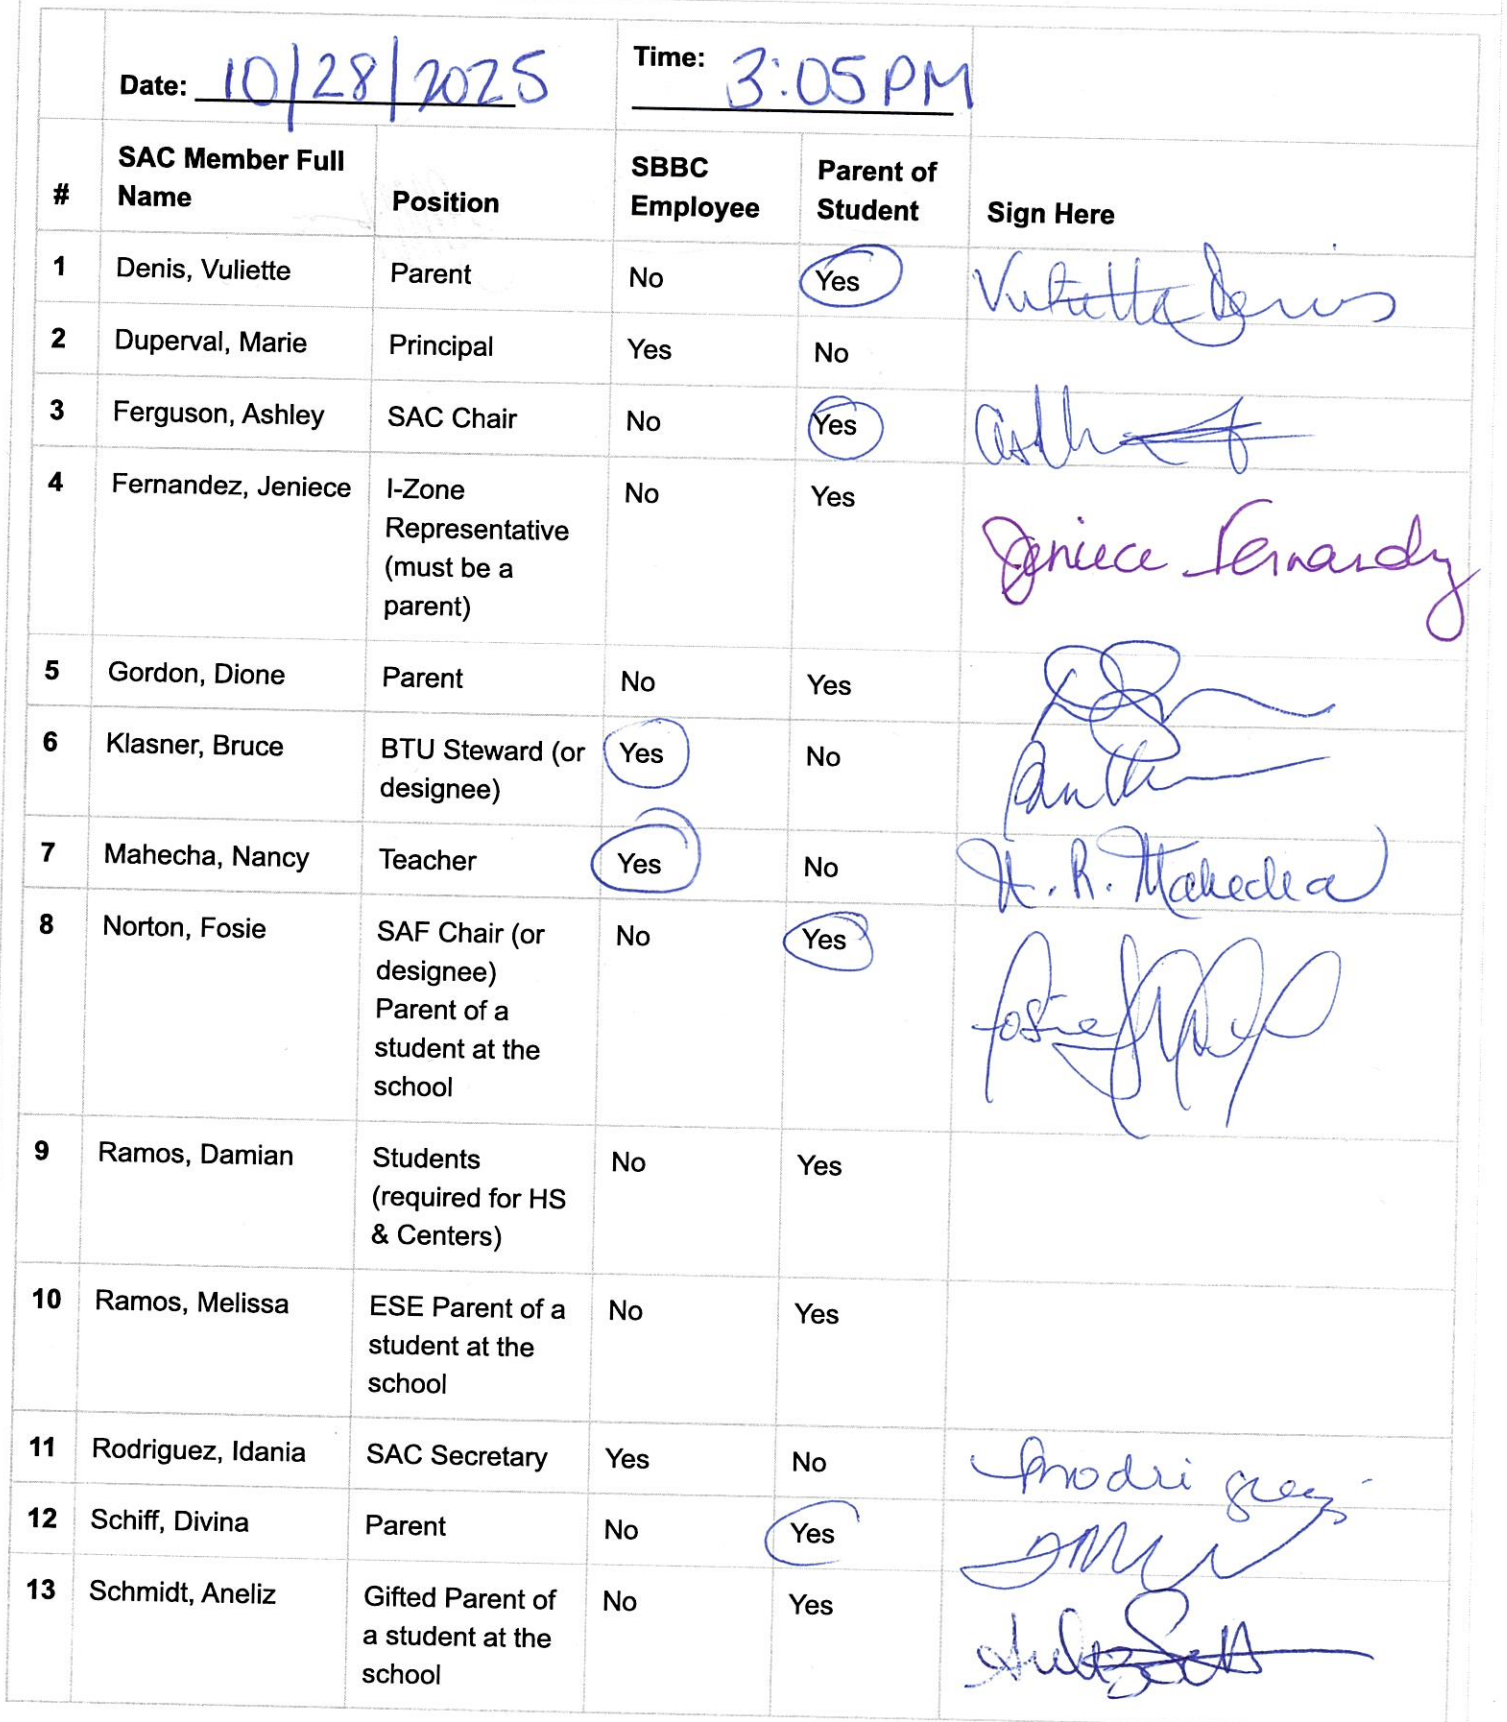 Date: 10/28/2025 Time: 3:05 PM
# SAC Member Full Name Position SBBC Employee Parent of Student Sign Here
1 Denis, Vuliette Parent No Yes Vuliette Denis
2 Duperval, Marie Principal Yes No
3 Ferguson, Ashley SAC Chair No Yes
4 Fernandez, Jeniece I-Zone No Yes Jeniece Fernandez
Representative
(must be a
parent)
5 Gordon, Dione Parent No Yes
6 Klasner, Bruce BTU Steward (or Yes No
designee)
7 Mahecha, Nancy Teacher Yes No N. R. Mahecha
8 Norton, Fosie SAF Chair (or No Yes Fosie
designee)
Parent of a
student at the
school
9 Ramos, Damian Students No Yes
(required for HS
& Centers)
10 Ramos, Melissa ESE Parent of a No Yes
student at the
school
11 Rodriguez, Idania SAC Secretary Yes No Irodriguez
12 Schiff, Divina Parent No Yes
13 Schmidt, Aneliz Gifted Parent of No Yes
a student at the
school